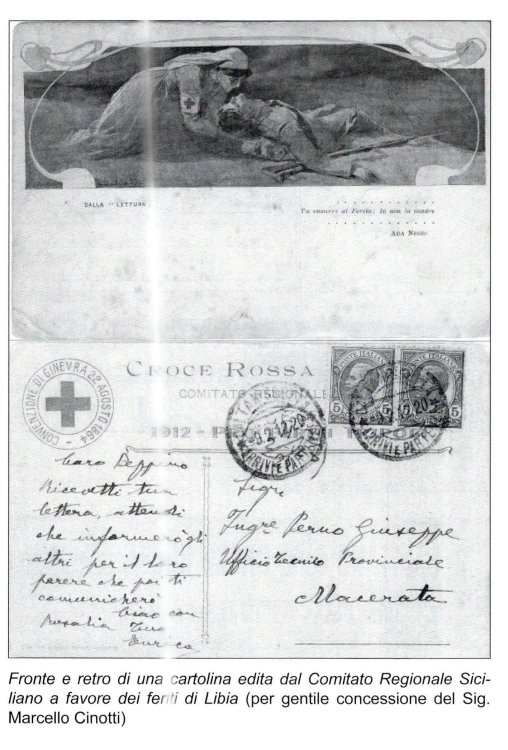 DALLA "LETTURA
Tu sussurra al Ferito: Io son la madre
ADA NEGRI
CONVENZIONE DI GINEVRA 22 AGOSTO 1864
CROCE ROSSA
COMITATO REGIONALE
1912 - P
POSTE ITALIANE
5
5
9.2.12.20
ARRIVI E PARTENZE
Caro Peppino
Ricevetti tua
lettera, attendi
che informerò gli
altri per il loro
parere che poi ti
comunicherò
Ciao con
Rosalia tuo
Enrico
Sigr.
Ingre Perno Giuseppe
Ufficio Tecnico Provinciale
Macerata
Fronte e retro di una cartolina edita dal Comitato Regionale Sici-
liano a favore dei feriti di Libia (per gentile concessione del Sig.
Marcello Cinotti)